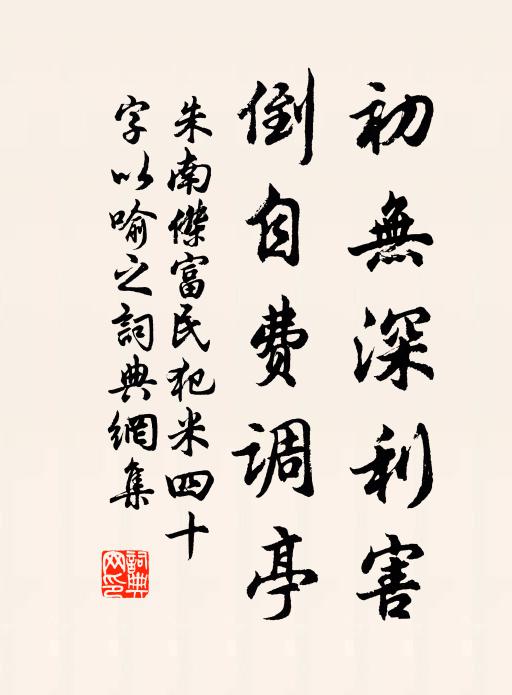 初無深利害
倒自費調亭
朱南傑富民犯米四十
字以喻之詞典網集
詞典網印